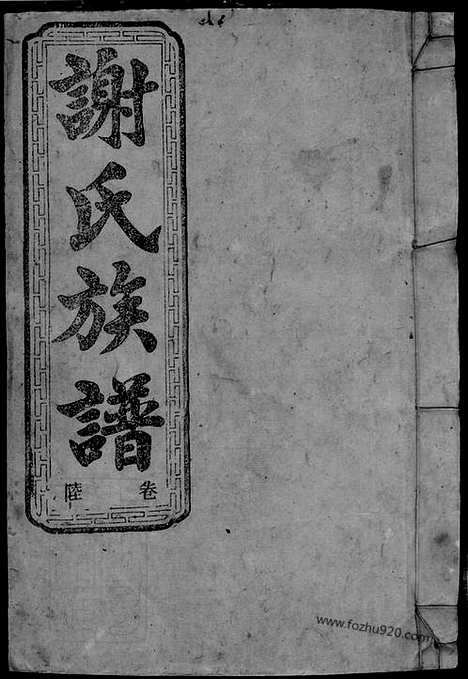 謝氏族譜
卷陸
www.fozhu920.com